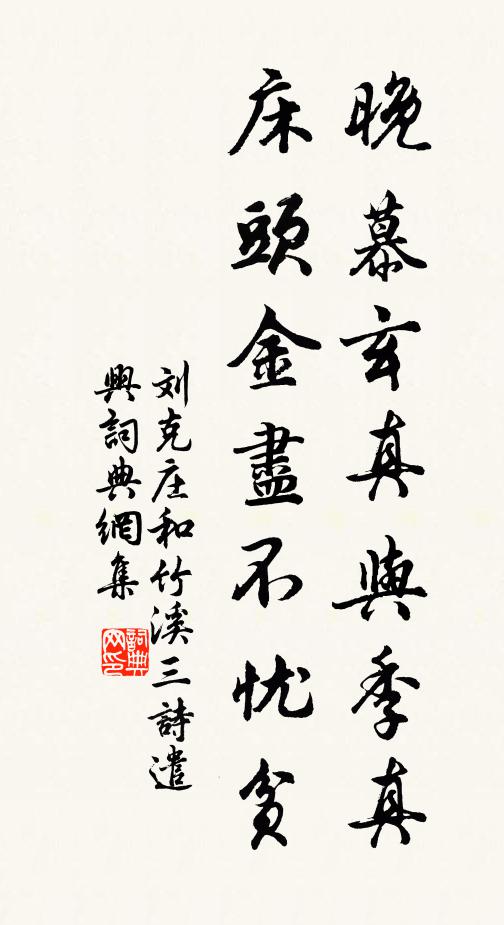 晚慕玄真與季真
床頭金盡不忧貧
刘克庄和竹溪三詩遣
興詞典網集
詞典网印